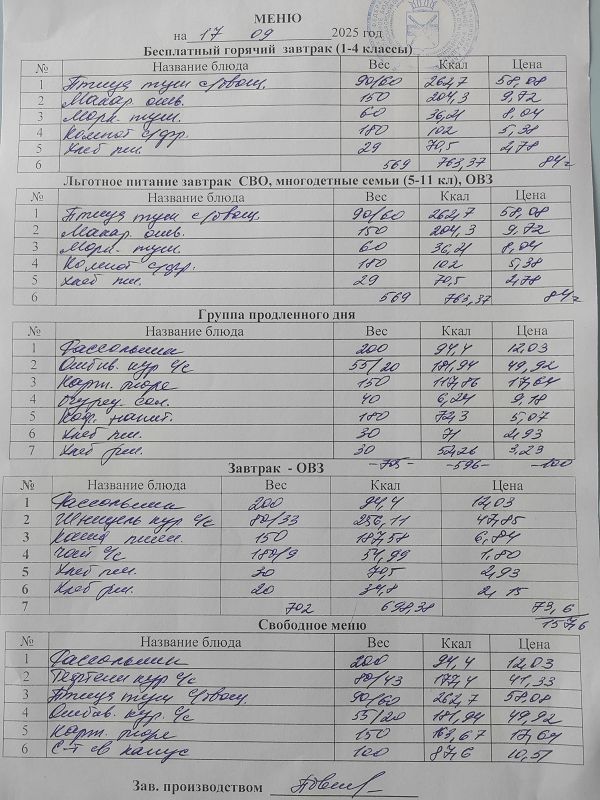 МЕНЮ
на 17 09 2025 год
Бесплатный горячий завтрак (1-4 классы)
№ Название блюда Вес Ккал Цена
1 Птица туш с/овощ. 90/60 262,7 58,08
2 Макар отв. 150 204,3 9,72
3 Морк. туш. 60 36,21 8,04
4 Компот с/фр. 180 102 5,38
5 Хлеб пш. 29 70,5 2,78
6 569 763,37 84
Льготное питание завтрак СВО, многодетные семьи (5-11 кл), ОВЗ
Название блюда Вес Ккал Цена
1 Птица туш с/овощ. 90/60 262,7 58,08
2 Макар. отв. 150 204,3 9,72
3 Морк. туш. 60 36,21 8,04
4 Компот с/фр. 180 102 5,38
5 Хлеб пш. 29 70,5 2,78
6 569 763,37 84
Группа продленного дня
№ Название блюда Вес Ккал Цена
1 Рассольник 200 94,4 12,03
2 кур с/с 55/20 181,94 49,92
3 Карт. пюре 150 17,64
4 Огурец. сол. 40 6,24 9,18
5 Коф. напит. 180 72,3 5,07
6 Хлеб пш. 30 71 2,93
7 Хлеб рж. 30 52,26 3,23
-705- -596- -100
Завтрак - ОВЗ
№ Название блюда Вес Ккал Цена
1 Рассольник 200 94,4 12,03
2 Шницель кур с/с 80/33 256,11 47,85
3 Каша пшен. 150 187,58 6,84
4 Чай с/с 180/9 54,99 1,80
5 Хлеб пш. 30 70,5 2,93
6 Хлеб рж. 20 34,8 2,15
7 702 698,38 73,6
157,6
Свободное меню
№ Название блюда Вес Ккал Цена
1 Рассольник 200 94,4 12,03
2 Тефтели кур с/с 80/43 177,4 41,33
3 Птица туш с/овощ. 90/60 262,7 58,08
4 кур. с/с 55/20 181,94 49,92
5 Карт. пюре 150 163,67 17,64
6 С-т св капус 100 87,6 10,51
Зав. производством